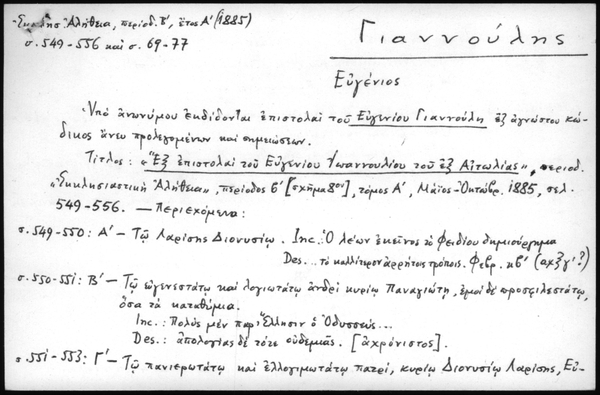 Ἐκκλησ. Ἀλήθεια, περίοδ. Β', ἔτος Α' (1885)
σ. 549-556 καὶ σ. 69-77
Γιαννούλης
Εὐγένιος
Ὑπὸ ἀνωνύμου ἐκδίδονται ἐπιστολαὶ τοῦ Εὐγενίου Γιαννούλη ἐξ ἀγνώστου κώ-
δικος ἄνευ προλεγομένων καὶ σημειώσεων.
Τίτλος: «Ἓξ ἐπιστολαὶ τοῦ Εὐγενίου Ἰωαννουλίου τοῦ ἐξ Αἰτωλίας», περιοδ.
«Ἐκκλησιαστικὴ Ἀλήθεια», περίοδος β' [σχῆμα 8ον], τόμος Α', Μάϊος-Ὀκτώβρ. 1885, σελ.
549-556. — Περιεχόμενα:
σ. 549-550: Α' - Τῷ Λαρίσης Διονυσίῳ. Inc.: Ὁ λέων ἐκεῖνος τὸ Φειδίου δημιούργημα
Des... τὸ κάλλιτρον ἀρρήτοις τρόποις. Φεβρ. κβ' (αχξγ'?)
σ. 550-551: Β' - Τῷ εὐγενεστάτῳ καὶ λογιωτάτῳ ἀνδρὶ κυρίῳ Παναγιώτῃ, ἐμοὶ δὲ προσφιλεστάτῳ,
ὅσα τὰ καταθύμια.
Inc.: Πολὺς μὲν παρ' Ἕλλησιν ὁ Ὀδυσσεύς...
Des.: ἀπολογίας δὲ τότε οὐδεμιᾶς. [ἀχρόνιστος].
σ. 551-553: Γ' - Τῷ πανιερωτάτῳ καὶ ἐλλογιμωτάτῳ πατρί, κυρίῳ Διονυσίῳ Λαρίσης, Εὐ-